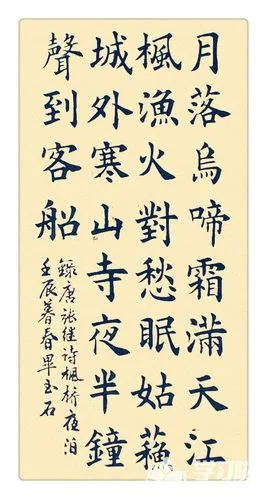 月落烏啼霜滿天江
楓漁火對愁眠姑蘇
城外寒山寺夜半鐘
聲到客船
錄唐張继诗楓桥夜泊
壬辰暮春畢玉石
学习